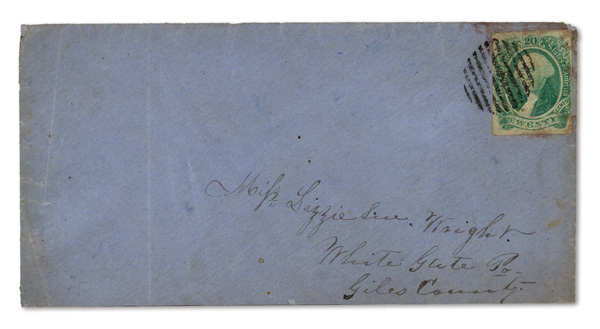 20
TWENTY
Miss Lizzie Sue. Wright.
White Gate Po.
Giles County.